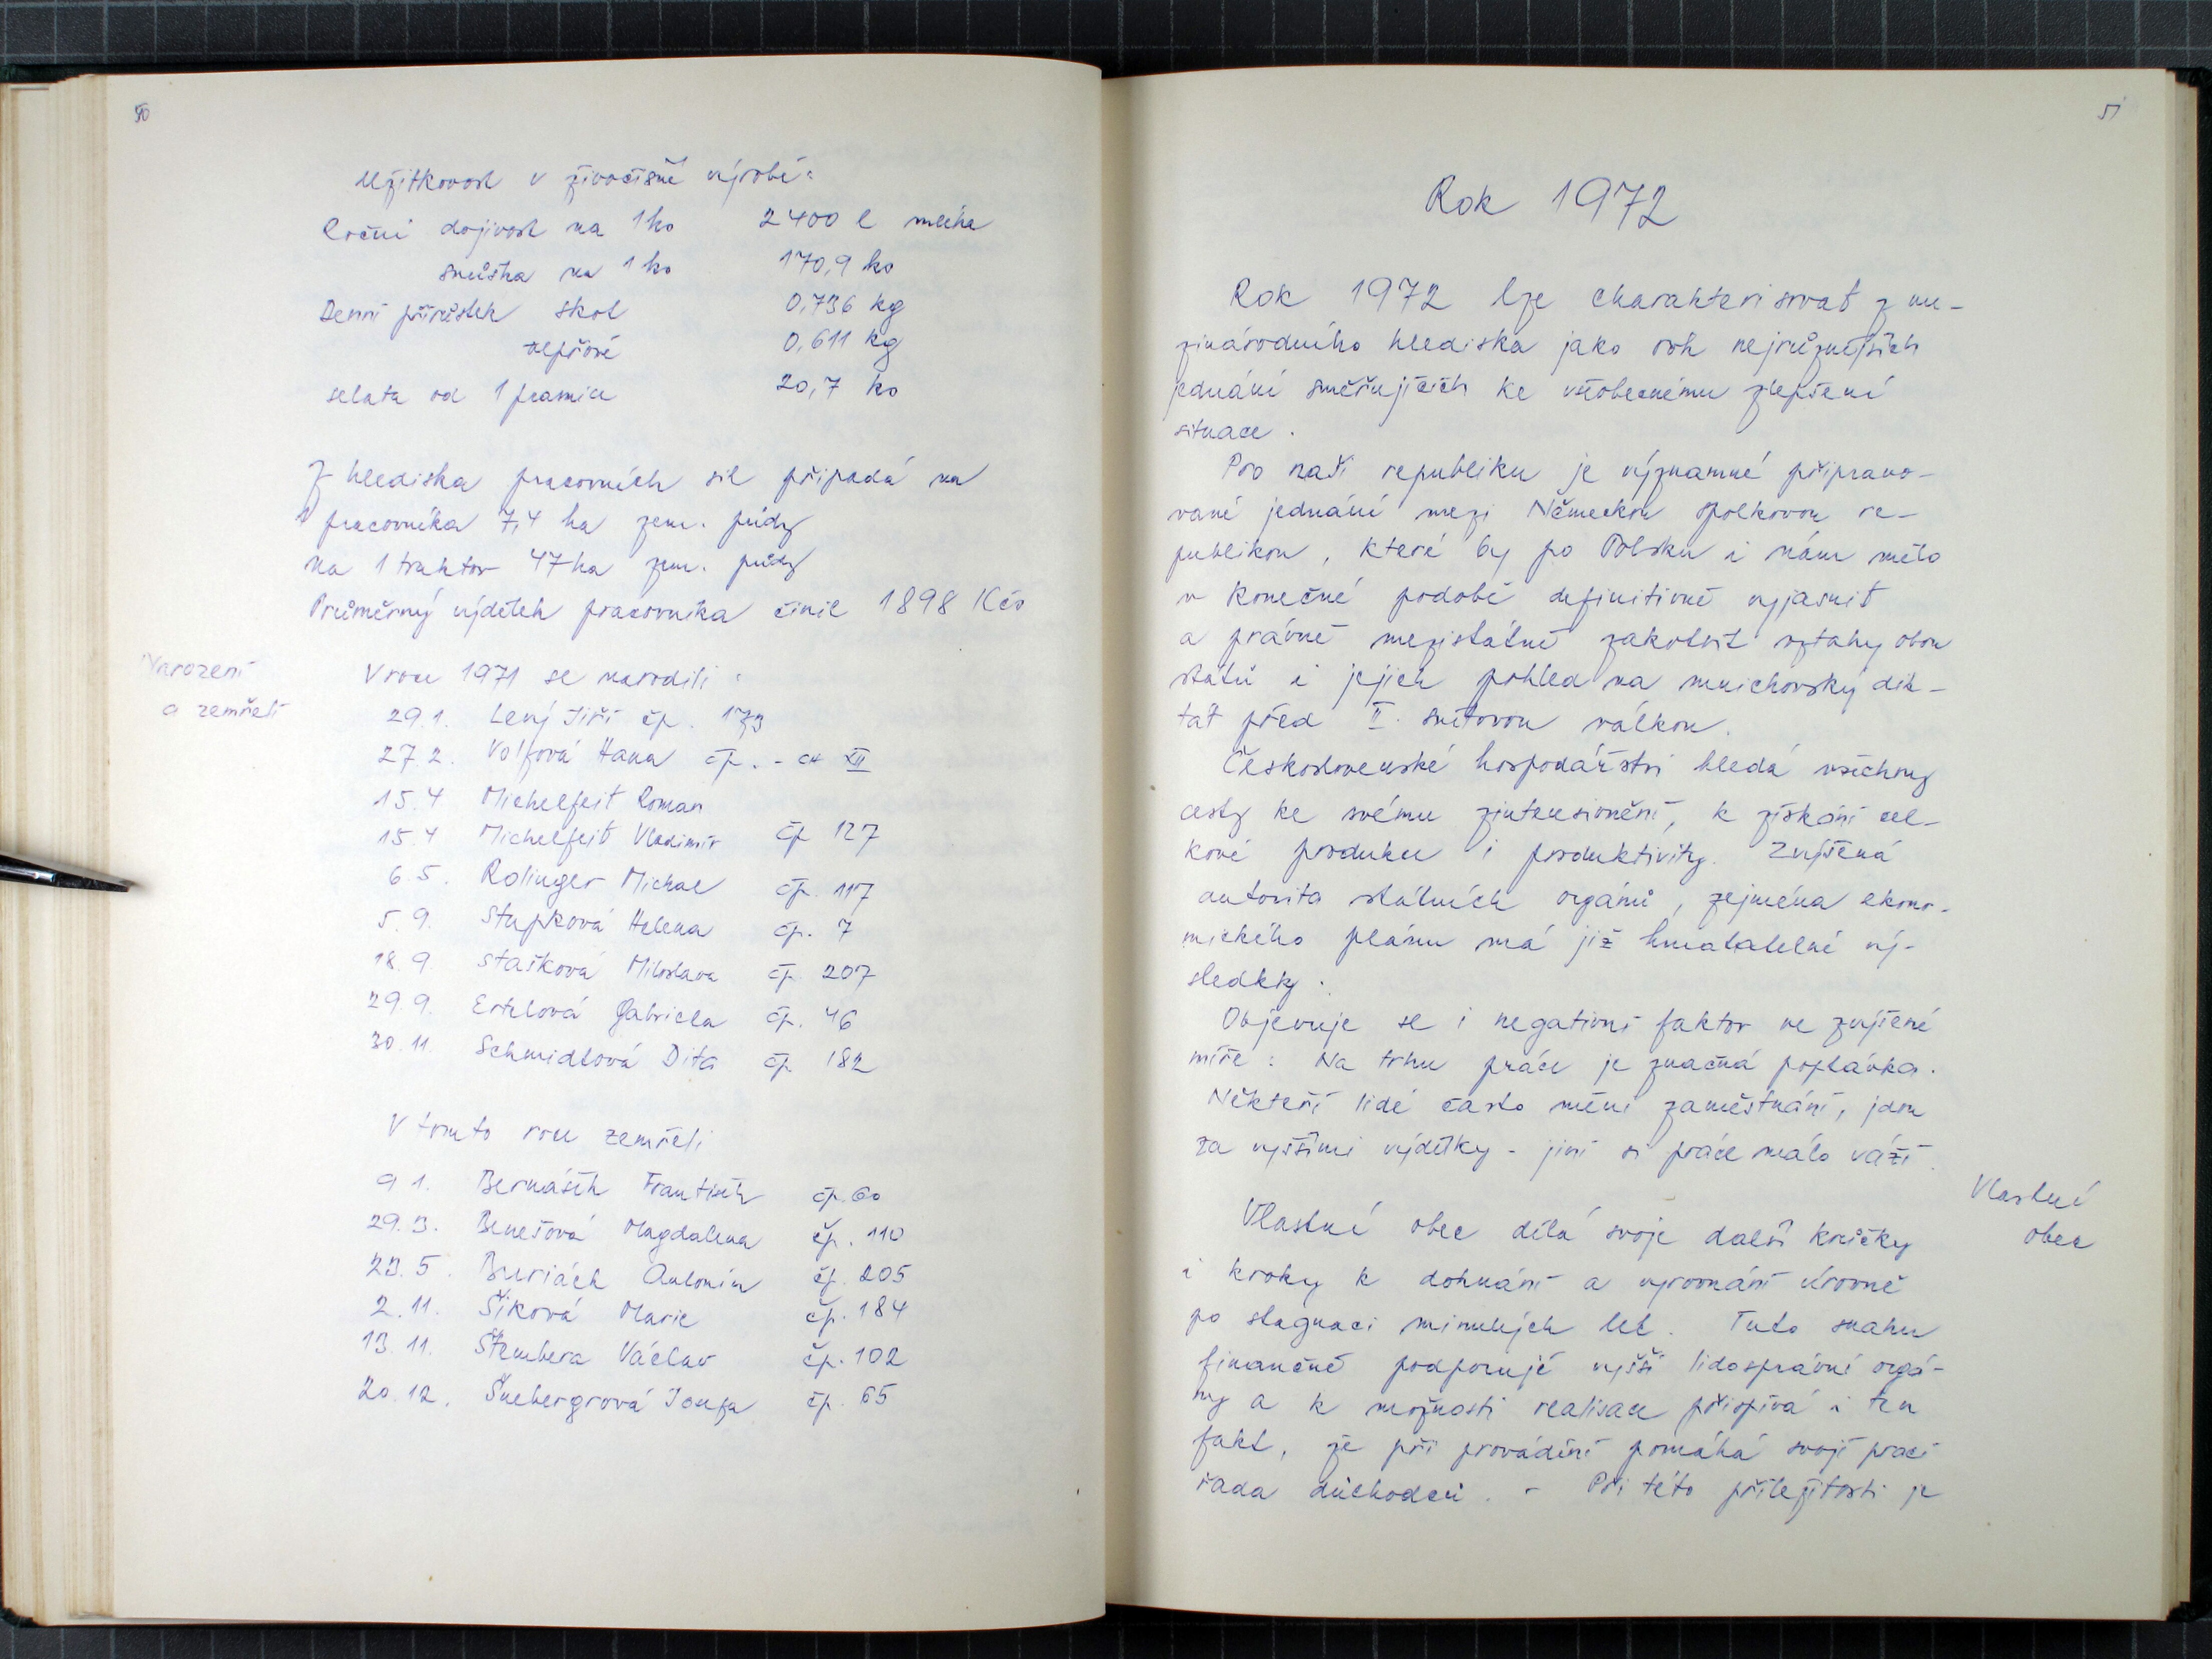 50
Užitkovost v živočišné výrobě:
Roční dojivost na 1 ks 2400 l mléka
snůška na 1 ks 170,9 ks
Denní přírůstek skot 0,736 kg
vepřové 0,611 kg
selata od 1 prasnice 20,7 ks
Z hlediska pracovních sil připadá na
1 pracovníka 7,4 ha zem. půdy
na 1 traktor 47 ha zem. půdy
Průměrný výdělek pracovníka činil 1898 Kčs
Narození
a zemřelí
V roce 1971 se narodili:
29.1. Levý Jiří čp. 173
27.2. Volfová Hana čp. - ch XII
15.4 Michelfeit Roman
15.4 Michelfeit Vladimír čp 127
6.5. Rolinger Michal čp. 117
5.9. Stupková Helena čp. 7
18.9 Stašková Miloslava čp. 207
29.9. Ertelová Gabriela čp. 46
30.11. Schmidtová Dita čp. 182
V tomto roce zemřeli
9.1. Bernášek František čp. 60
29.3. Benešová Magdalena čp. 110
23.5. Buriách Antonín čp. 205
2.11. Šiková Marie čp. 184
13.11. Štembera Václav čp. 102
20.12. Šnebergrová Josefa čp. 65
51
Rok 1972
Rok 1972 lze charakterisovat z me-
zinárodního hlediska jako rok nejrůznějších
jednání směřujících ke všobecnému zlepšení
situace.
Pro naši republiku je významné připravo-
vané jednání mezi Německou spolkovou re-
publikou, které by po Polsku i nám mělo
v konečné podobě definitivně vyjasnit
a právně mezistátně zakotvit vztahy obou
států i jejich pohled na mnichovský dik-
tát před II. světovou válkou.
Československé hospodářství hledá všechny
cesty ke svému zintensivnění, k získání cel-
kové produkce i produktivity. Zvýšená
autorita státních orgánů, zejména ekono-
mického plánu má již hmatatelné vý-
sledky.
Objevuje se i negativní faktor ve zvýšené
míře: Na trhu práce je značná poptávka.
Někteří lidé často mění zaměstnání, jdou
za vyššími výdělky - jiní si práce málo váží.
Vlastní
obec
Vlastní obec dělá svoje další krůčky
i kroky k dohnání a vyrovnání úrovně
po stagnaci minulých let. Tuto snahu
finančně podporují vyšší lidosprávní orgá-
ny a k možnosti realisace přispívá i ten
fakt, že při provádění pomáhá svojí prací
řada důchodců. - Při této příležitosti je